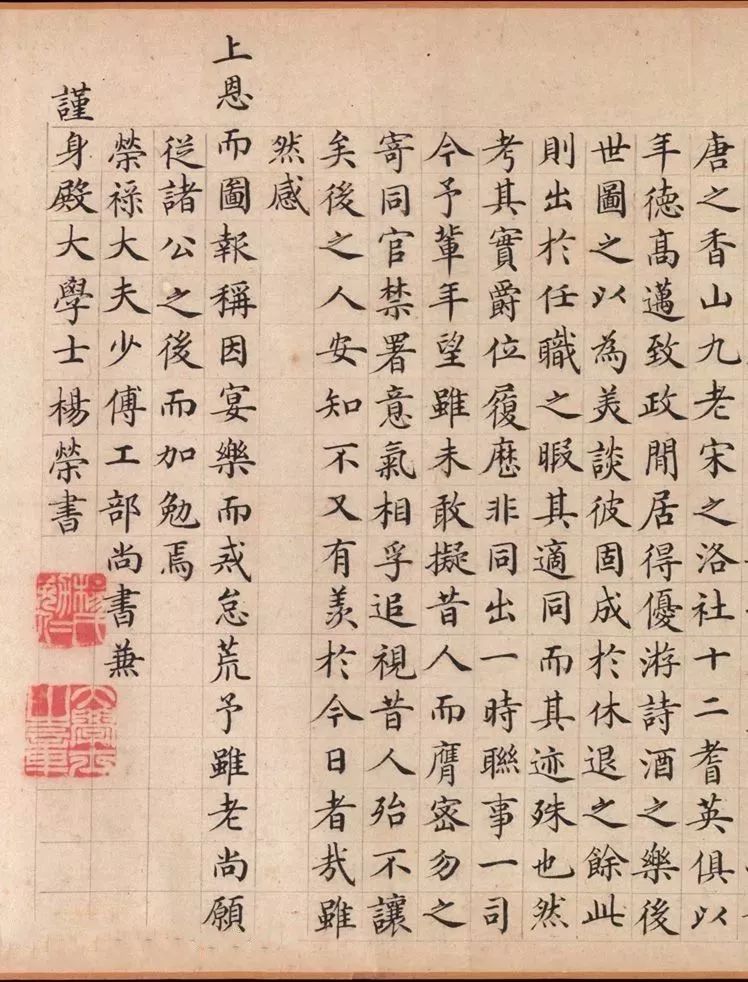 唐之香山九老宋之洛社十二耆英俱以
年德高邁致政閒居得優游詩酒之樂後
世圖之以為美談彼固成於休退之餘此
則出於任職之暇其適同而其迹殊也然
考其實爵位履歷非同出一時聯事一司
今予輩年望雖未敢擬昔人而膺密勿之
寄同官禁署意氣相孚追視昔人殆不讓
矣後之人安知不又有羨於今日者哉雖
然感
上恩而圖報稱因宴樂而戒怠荒予雖老尚願
從諸公之後而加勉焉
榮祿大夫少傅工部尚書兼
謹身殿大學士楊榮書
楊氏勉仁